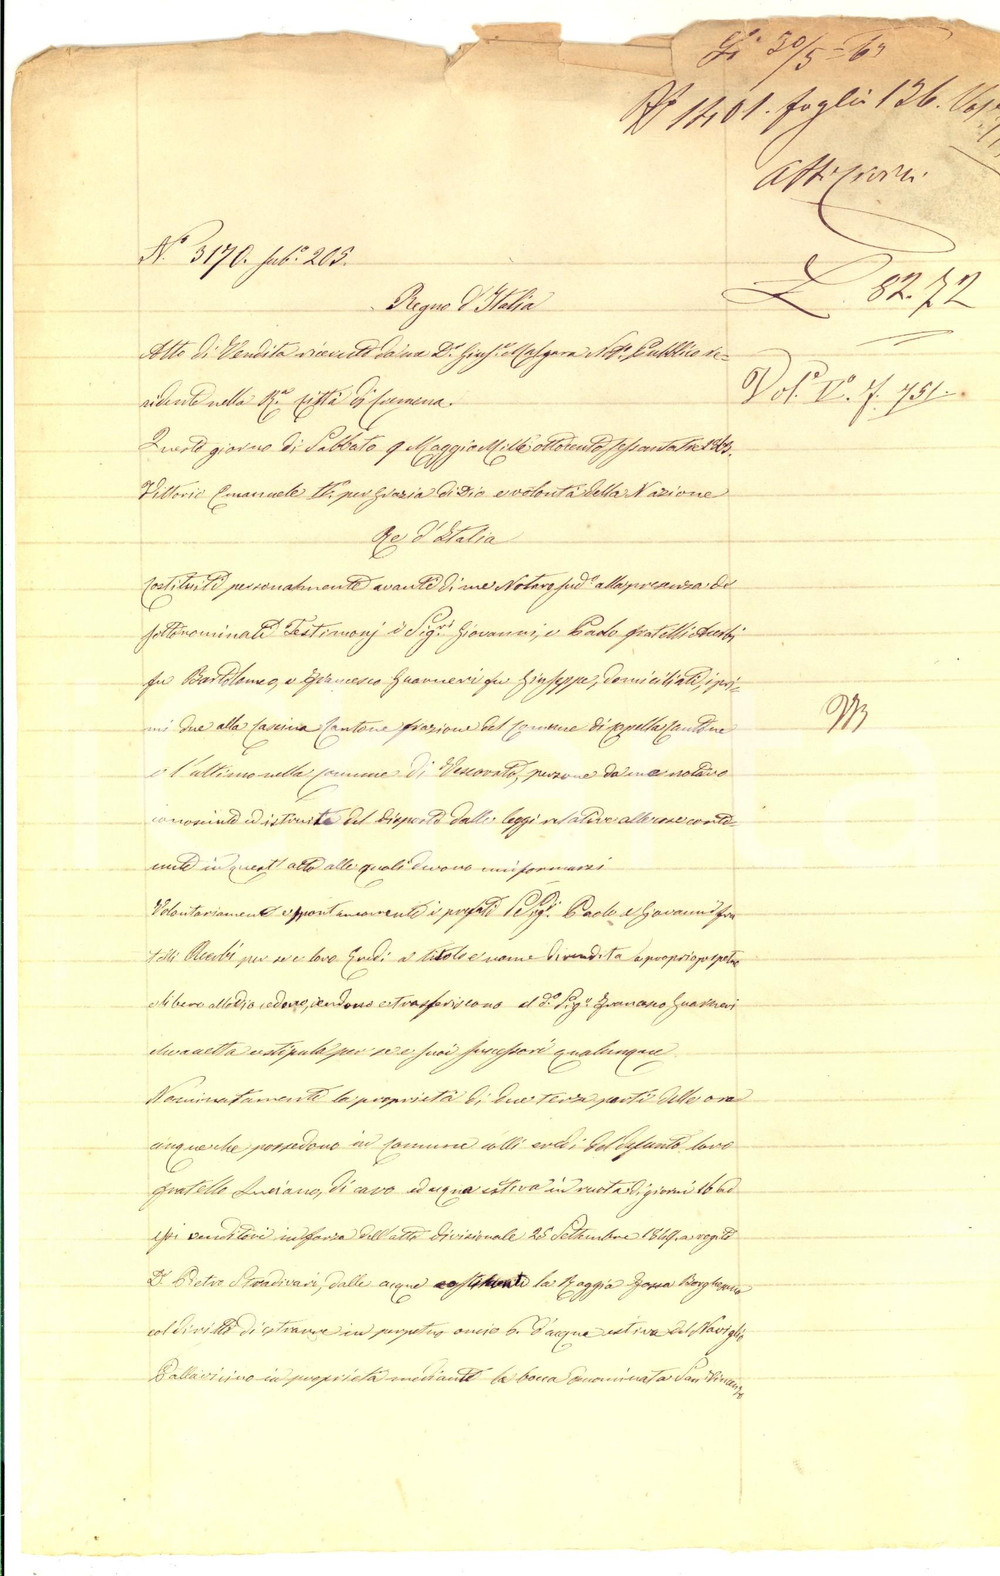 Li 30/5 - 63
N° 1401. foglio 126. Vol
Atti Civili
L. 82.72
Vol. V.° f. 751.
N.° 3170. sub.° 205.
Regno d'Italia
Atto di Vendita ricevuto da me D.r Gius.e Malgara Not.o Pubblico re=
sidente nella R.a Città di Cremona.
Questo giorno di Sabbato 9 Maggio Mille ottocento sessantatre 1863.
Vittorio Emanuele II.° per grazia di Dio e volontà della Nazione
Re d'Italia
Costituiti personalmente avanti di me Notaro sud.o alla presenza dei
sottonominati Testimonj i Sig.ri Giovanni, e Paolo fratelli
fu Bartolomeo, e Francesco Guarneri fu Giuseppe, domiciliati, i pri=
mi due alla Cascina Cantone frazione del Comune di Cappella Cantone
e l'ultimo nella Comune di Vescovato, persone da me notaro
conosciute ed istruite del disposto dalle leggi relative alle cose conte=
nute in quest'atto alle quali devono uniformarsi
Volontariamente e spontaneamente i prefati Sig.ri Paolo e Giovanni fra
telli per se e loro Eredi a titolo e nome di vendita
e libero allodio cedono, vendono e trasferiscono al d.o Sig.r Francesco Guarneri
che accetta e stipula per se e suoi successori qualunque
Nominatamente la proprietà di due terze parti delle ore
cinque che possedono in Comune colli eredi del defunto loro
fratello Luciano, di cavo ed acqua estiva in ruota di giorni 16 ad
essi venditori in forza dell'atto divisionale 25 Settembre 1849 a rogito
D.r Pietro Stradivari, dalle acque costituenti la Roggia Fossa Borgherina
col diritto di estrarre in perpetuo oncie 6. d'acqua estiva dal Naviglio
Pallavicino in proprietà mediante la bocca denominata San Vincenzo